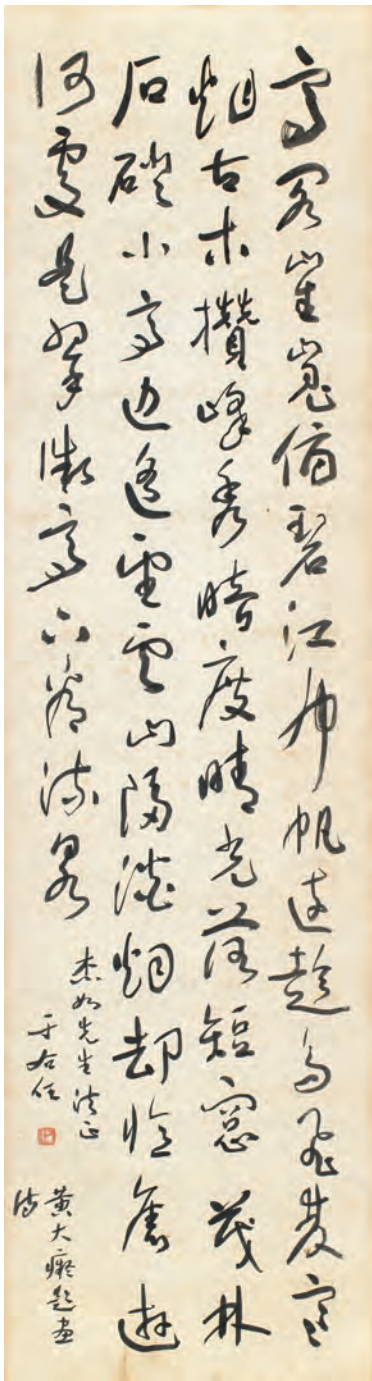 高閣崔嵬俯碧江布帆遠趁鳥飛雙寒
烟古木攢峰秀暗度晴光落短窓茂林
石磴小亭邊遙望雲山隔淡烟却憶舊遊
何處是翠微亭下看流泉
杰如先生法正
于右任
黃大癡題畫
詩